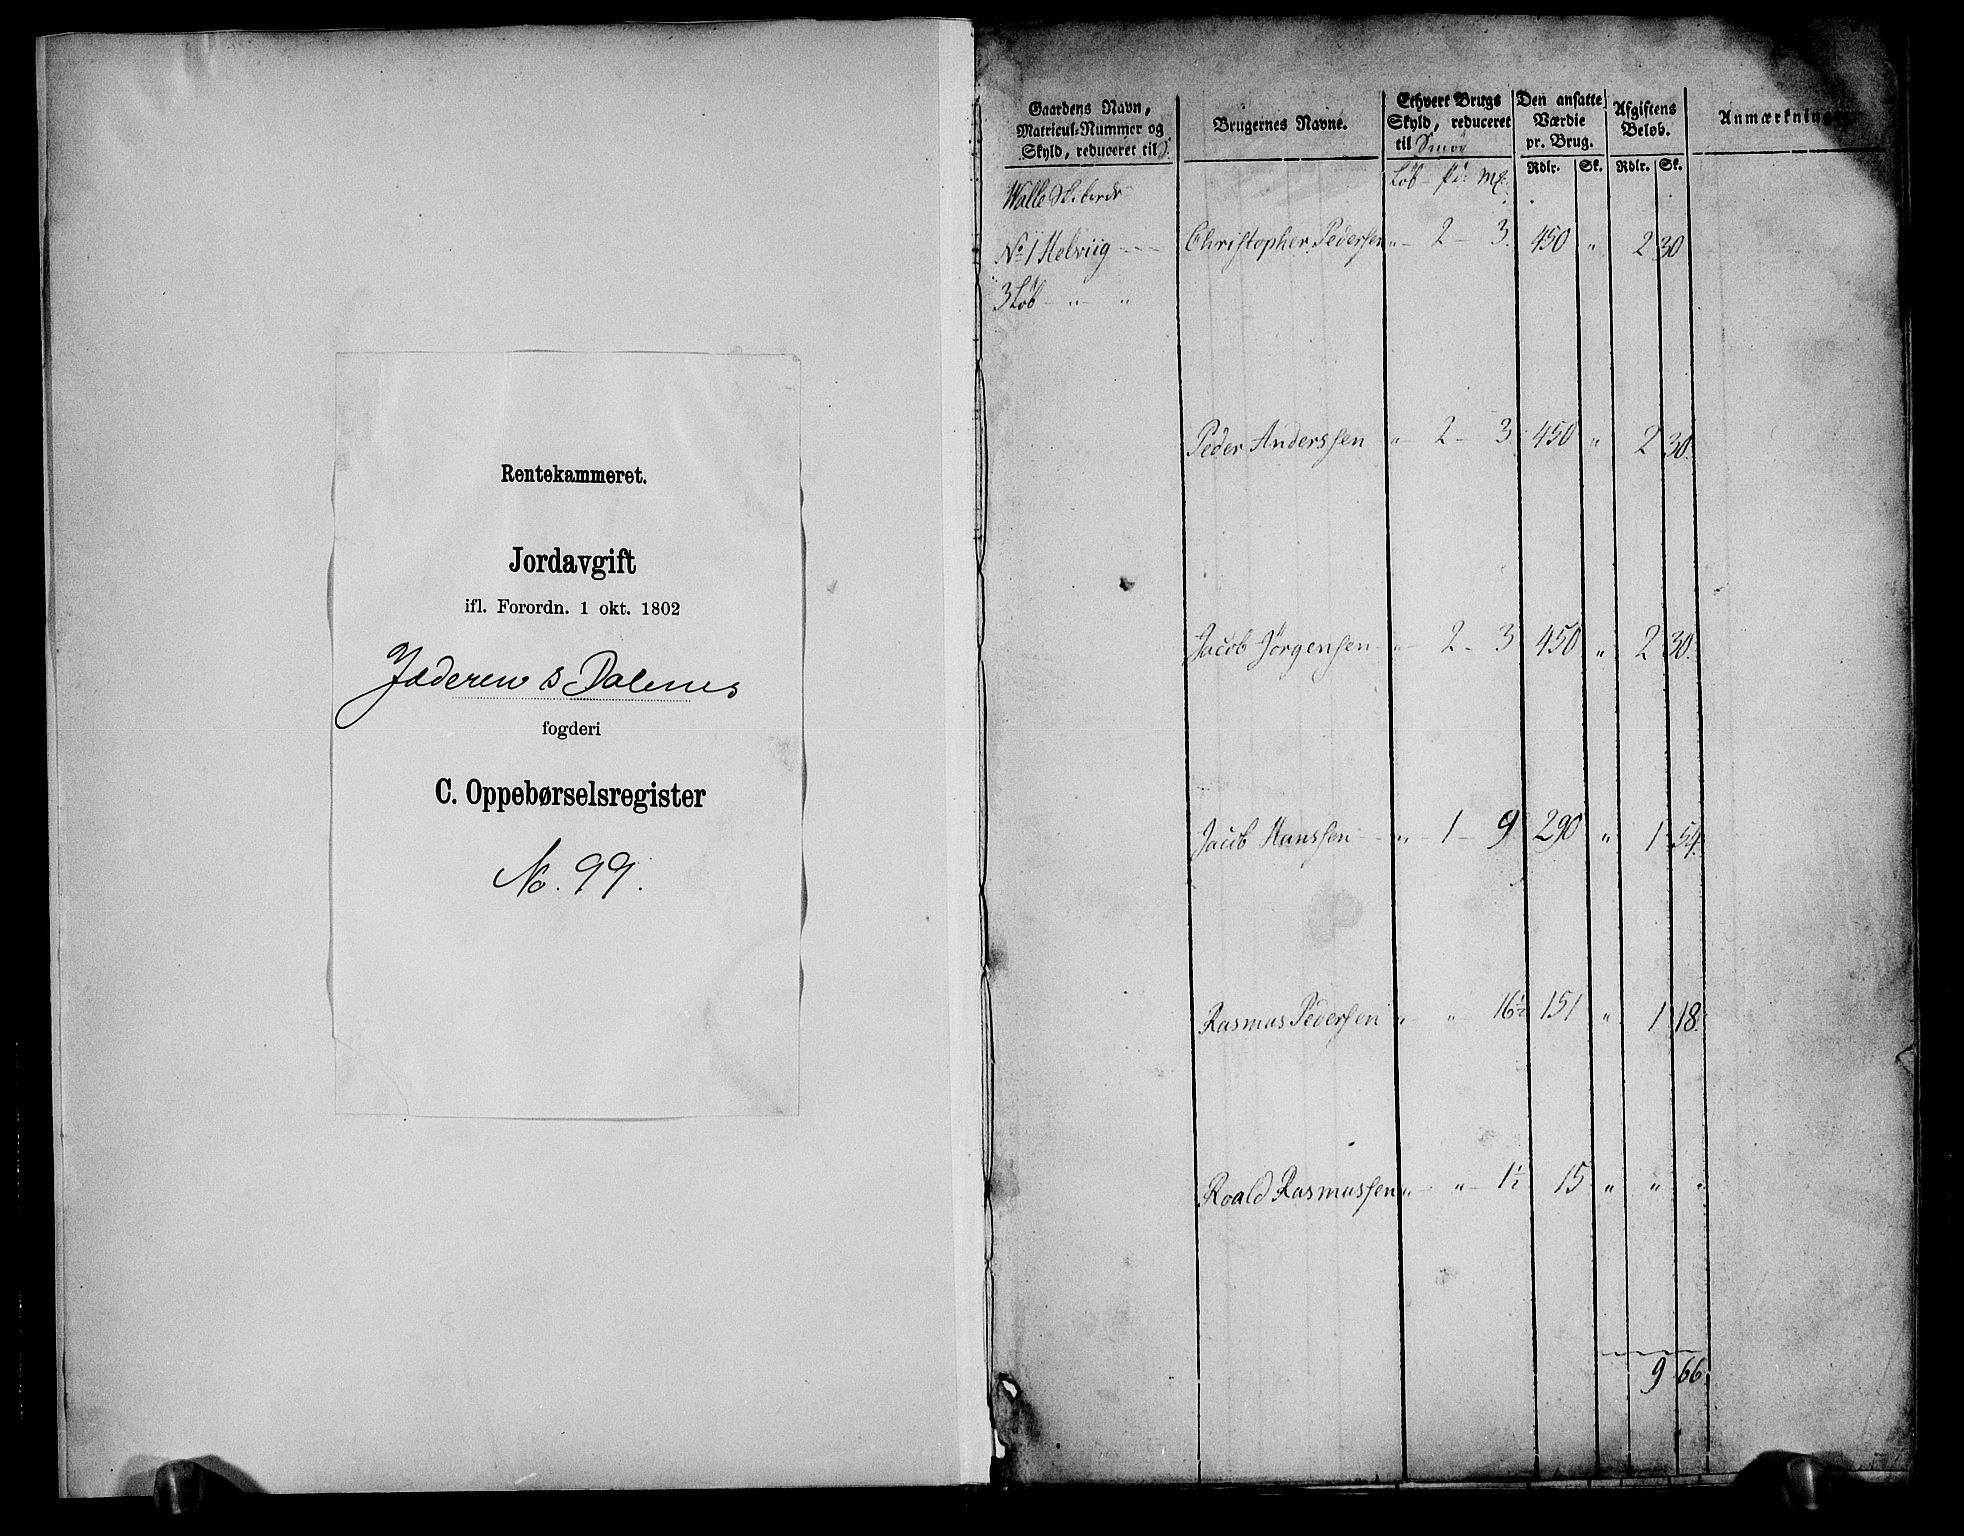 Rentekammeret.
Jordavgift
ifl. Forordn. 1 okt. 1802
Jæderen & Dalernes
fogderi
C. Oppebørselsregister
No. 99.
Gaardens Navn, Matricul-Nummer og Skyld, reduceret til S. | Brugernes Navne. | Ethvert Brugs Skyld, reduceret til Smör | Den ansatte Værdie pr. Brug. | Afgiftens Beløb. | Anmærkninger
Löb - Pd: - Mk: | Rdlr. | Sk. | Rdlr. | Sk.
Walle Skibrede
No 1 Helviig - - - Christopher Pedersen " - 2 - 3. 450 " 2 30
3 Löb - " - "
Peder Anderssen " - 2 - 3 450 " 2 30.
Jacob Jörgensen - " - 2 - 3 450 " 2 30.
Jacob Hanssen - " - 1 - 9 290 " 1 54.
Rasmus Pedersen " - " - 16½ 151 " 1 18.
Roald Rasmussen " - " - 1½ 15 " " "
9 66.